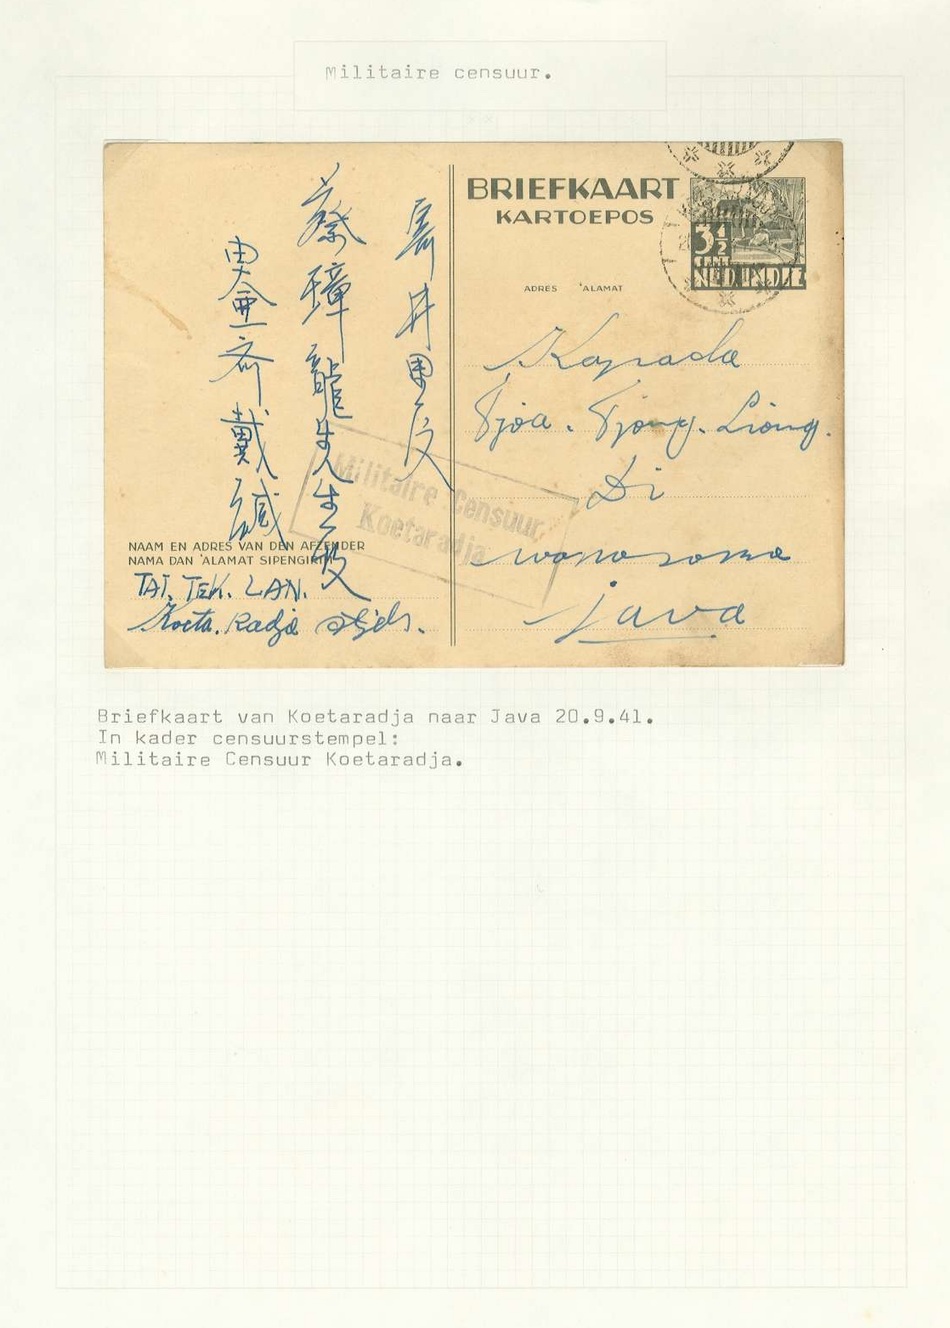 Militaire censuur.
BRIEFKAART
KARTOEPOS
3½
CENT
NED.INDIE
ADRES 'ALAMAT
Kapada
Tjoa. Tjong. Liong.
Di
wonosomo
java
井里
蔡璋龍先生
亞齊戴
Militaire Censuur,
Koetaradja
NAAM EN ADRES VAN DEN AFZENDER
NAMA DAN 'ALAMAT SIPENGIRIM
TAI. TEK. LAN.
Koeta. Radja Atjeh.
Briefkaart van Koetaradja naar Java 20.9.41.
In kader censuurstempel:
Militaire Censuur Koetaradja.